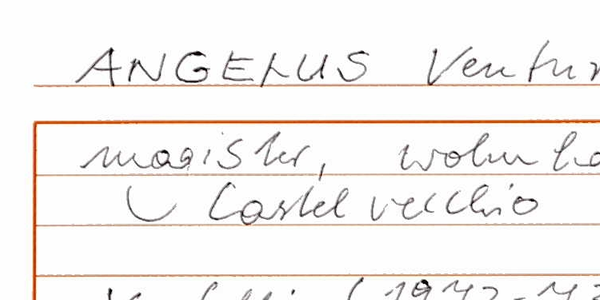 ANGELUS Ventur
magister, wohnha
Castelvecchio
(1942-43